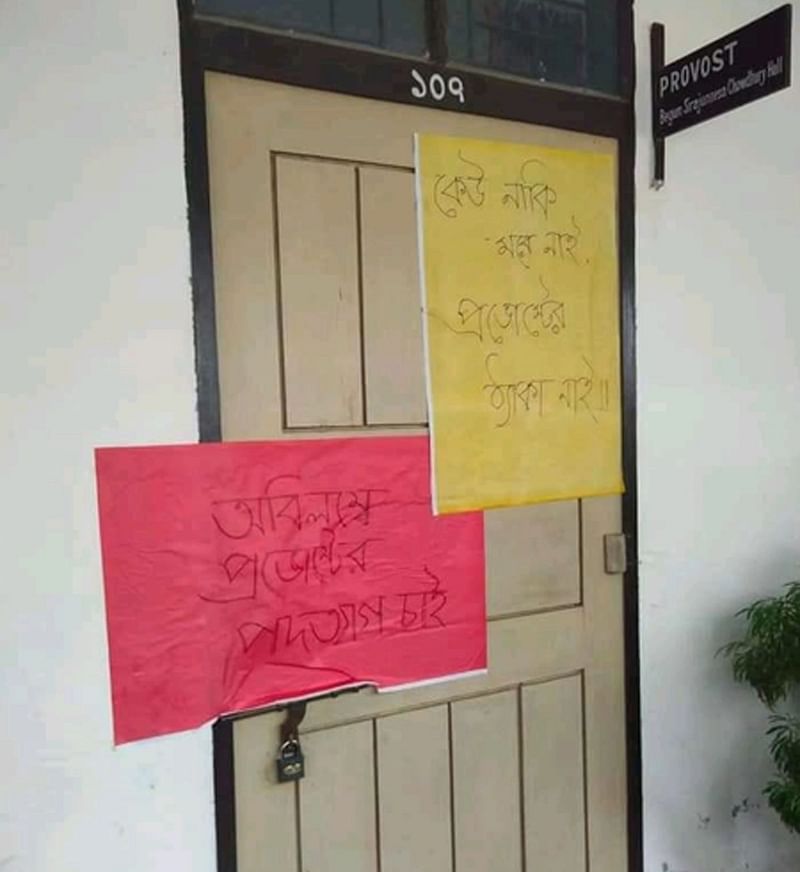 ১০৭
PROVOST
Begum Sirajunnesa Chowdhury Hall
কেউ নাকি
মরে নাই,
প্রভোস্টের
ঠ্যাকা নাই॥
অবিলম্বে
প্রভোস্টের
পদত্যাগ চাই